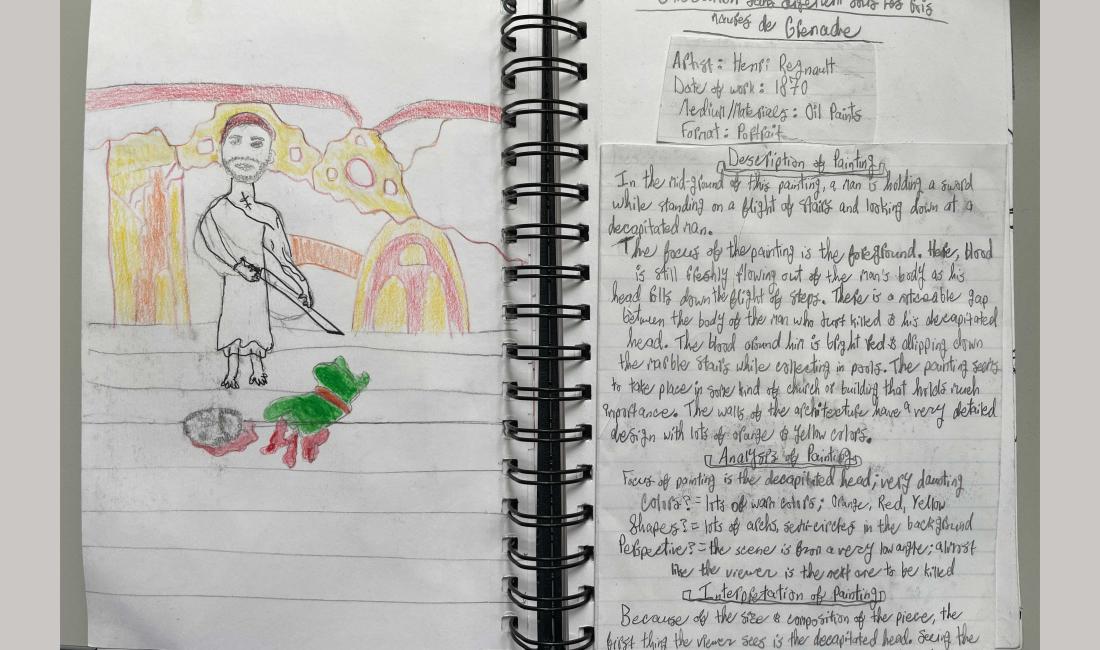 sous les Rois
Maures de Grenade
Artist: Henri Regnault
Date of work: 1870
Medium/Materials: Oil Paints
Format: Portrait
Description of Painting
In the mid-ground of this painting, a man is holding a sword
while standing on a flight of stairs and looking down at a
decapitated man.
The focus of the painting is the foreground. Here, blood
is still freshly flowing out of the man's body as his
head falls down the flight of steps. There is a noticeable gap
between the body of the man who just killed & his decapitated
head. The blood around him is bright red & dripping down
the marble stairs while collecting in pools. The painting seems
to take place in some kind of church or building that holds much
importance. The walls of the architecture have a very detailed
design with lots of orange & yellow colors.
Analysis of Painting
Focus of painting is the decapitated head; very daunting
Colors? = lots of warm colors; Orange, Red, Yellow
Shapes? = lots of archs, semi-circles in the background
Perspective? = the scene is from a very low angle; almost
like the viewer is the next one to be killed
Interpretation of Painting
Because of the size & composition of the piece, the
first thing the viewer sees is the decapitated head. Seeing the